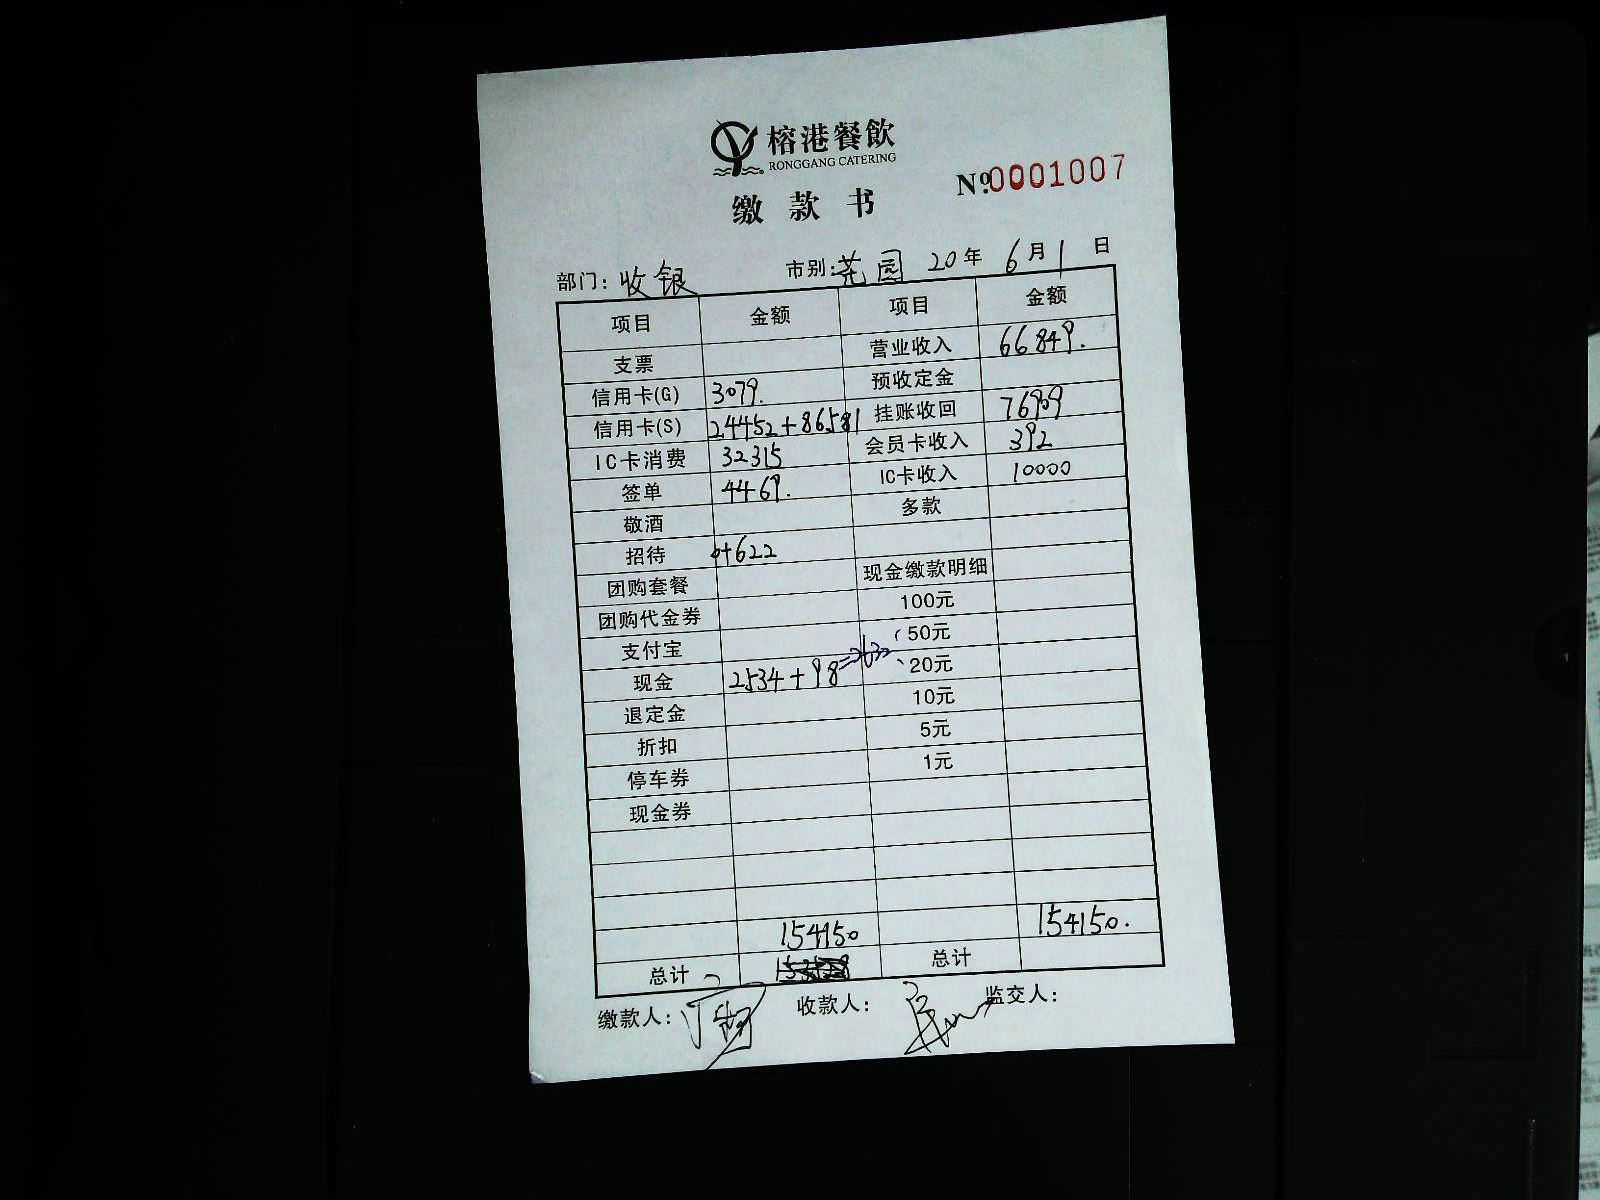 榕港餐飲
RONGGANG CATERING
缴款书
Nº 0001007
部门：收银 市别：芫园 20年 6月 1日
项目 金额 项目 金额
支票 营业收入 66849.
信用卡(G) 3079. 预收定金
信用卡(S) 24452+86581 挂账收回 76909
IC卡消费 32315 会员卡收入 392
签单 4469. IC卡收入 10000
敬酒 多款
招待 0+622
团购套餐 现金缴款明细
团购代金券 100元
支付宝 50元
现金 2534+98=2632 20元
退定金 10元
折扣 5元
停车券 1元
现金券
154150 154150.
总计 总计
缴款人： 收款人： 监交人：